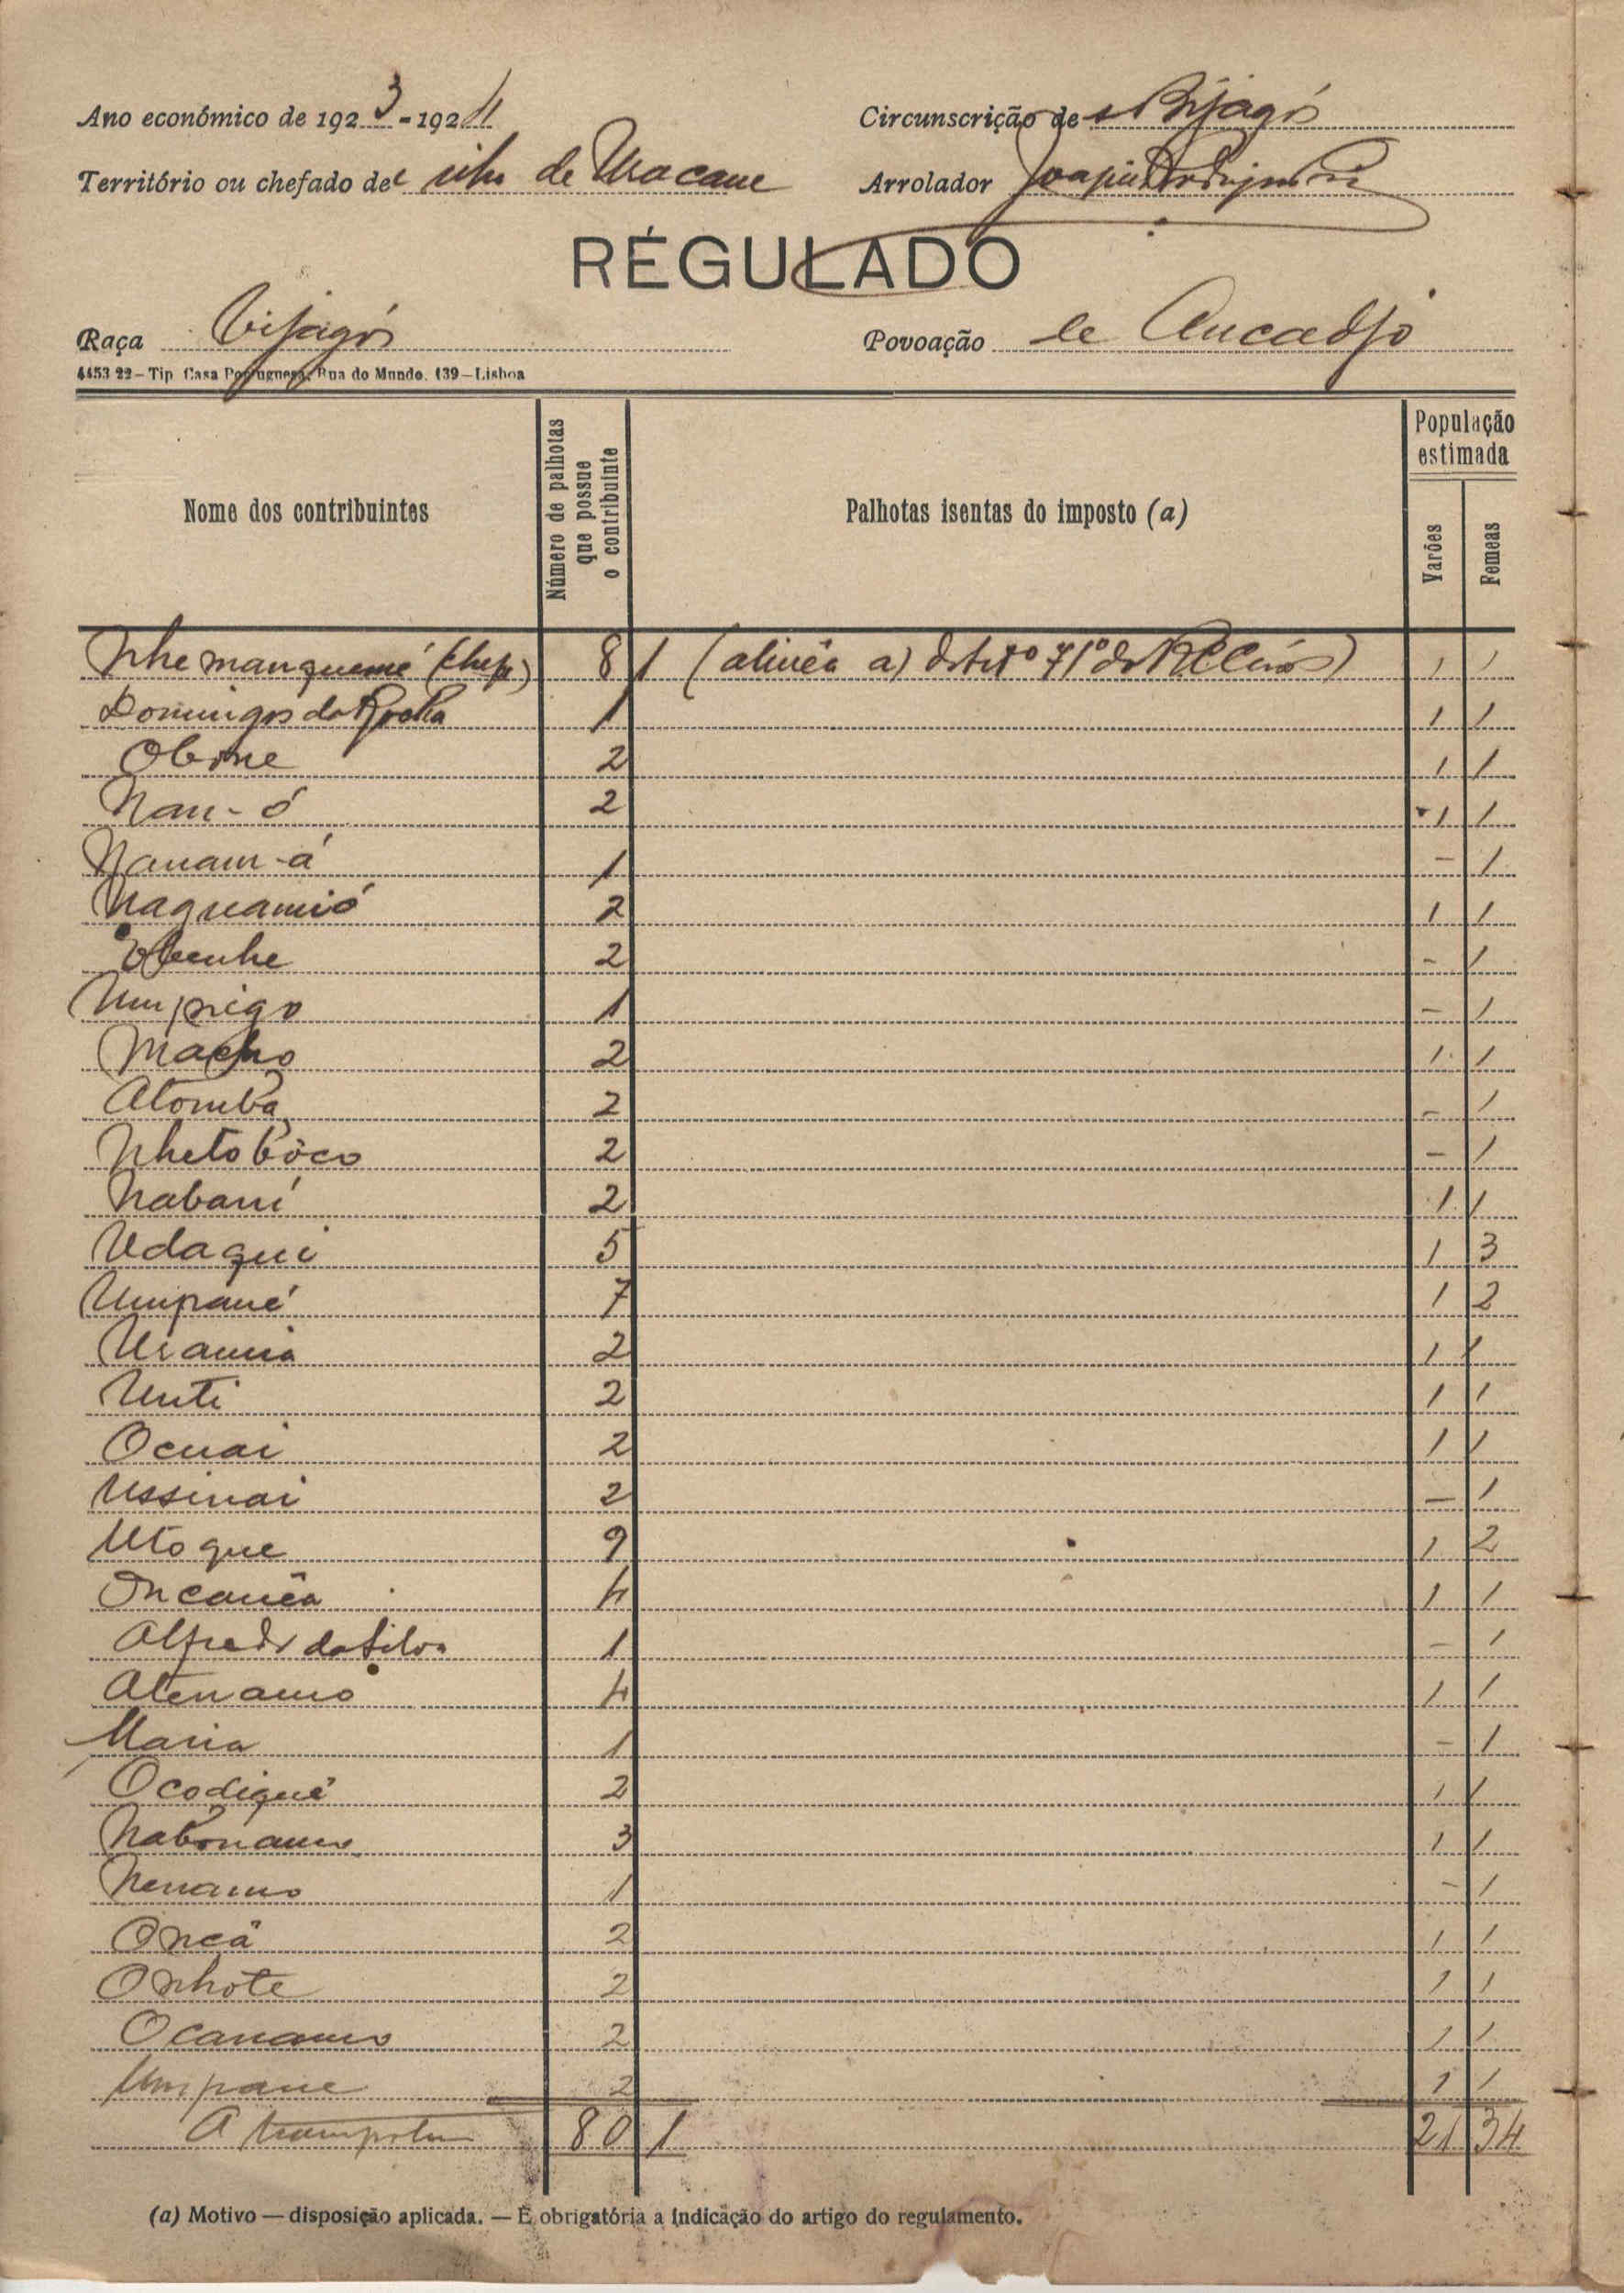 Ano económico de 1923-1924 Circunscrição de Bijagós
Território ou chefado de ilha de Uracane Arrolador
RÉGULADO
Raça Bijagós Povoação de Ancadjó
4453 22 — Tip Casa Portuguesa, Rua do Mundo, 139 — Lisboa
Nome dos contribuintes
Número de palhotas que possue o contribuinte
Palhotas isentas do imposto (a)
População estimada
Varões
Femeas
Nhemanquemé (chefe) 8 1 (alinêa a) 71º 1 1
Domingos da Rocha 1 1 1
Obone 2 1 1
Nan-ó 2 1 1
Nanam-á 1 - 1
Naguamió 2 1 1
2 - 1
Umprigo 1 - 1
Macho 2 1 1
Atomba 2 - 1
Nhetobôco 2 - 1
Nabaní 2 1 1
Udaqui 5 1 3
Umpané 7 1 2
2 1 1
Unti 2 1 1
Ocuai 2 1 1
Ussinai 2 - 1
Utoque 9 1 2
Oncanêa 4 1 1
Alfredo da Silva 1 - 1
Atenamo 4 1 1
Maria 1 - 1
Ocodiguê 2 1 1
Nabonamo 3 1 1
Nenamo 1 - 1
Oncâ 2 1 1
Onhote 2 1 1
Ocanamo 2 1 1
Umpane 2 1 1
A transportar 80 1 21 34
(a) Motivo — disposição aplicada. — É obrigatória a indicação do artigo do regulamento.